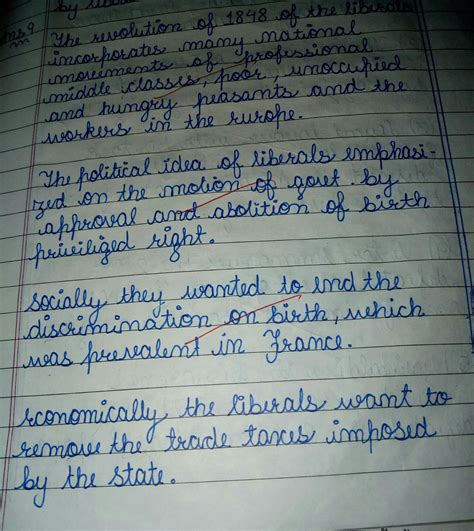 by
Ans 9
The revolution of 1848 of the liberals
incorporates many national
movements of professional
middle classes, poor, unoccupied
and hungry peasants and the
workers in the rurope.
The political idea of liberals emphasi-
zed on the motion of govt. by
approval and abolition of birth
priviliged right.
socially they wanted to end the
discrimination on birth, which
was prevalent in France.
rconomically the liberals want to
remove the trade taxes imposed
by the state.